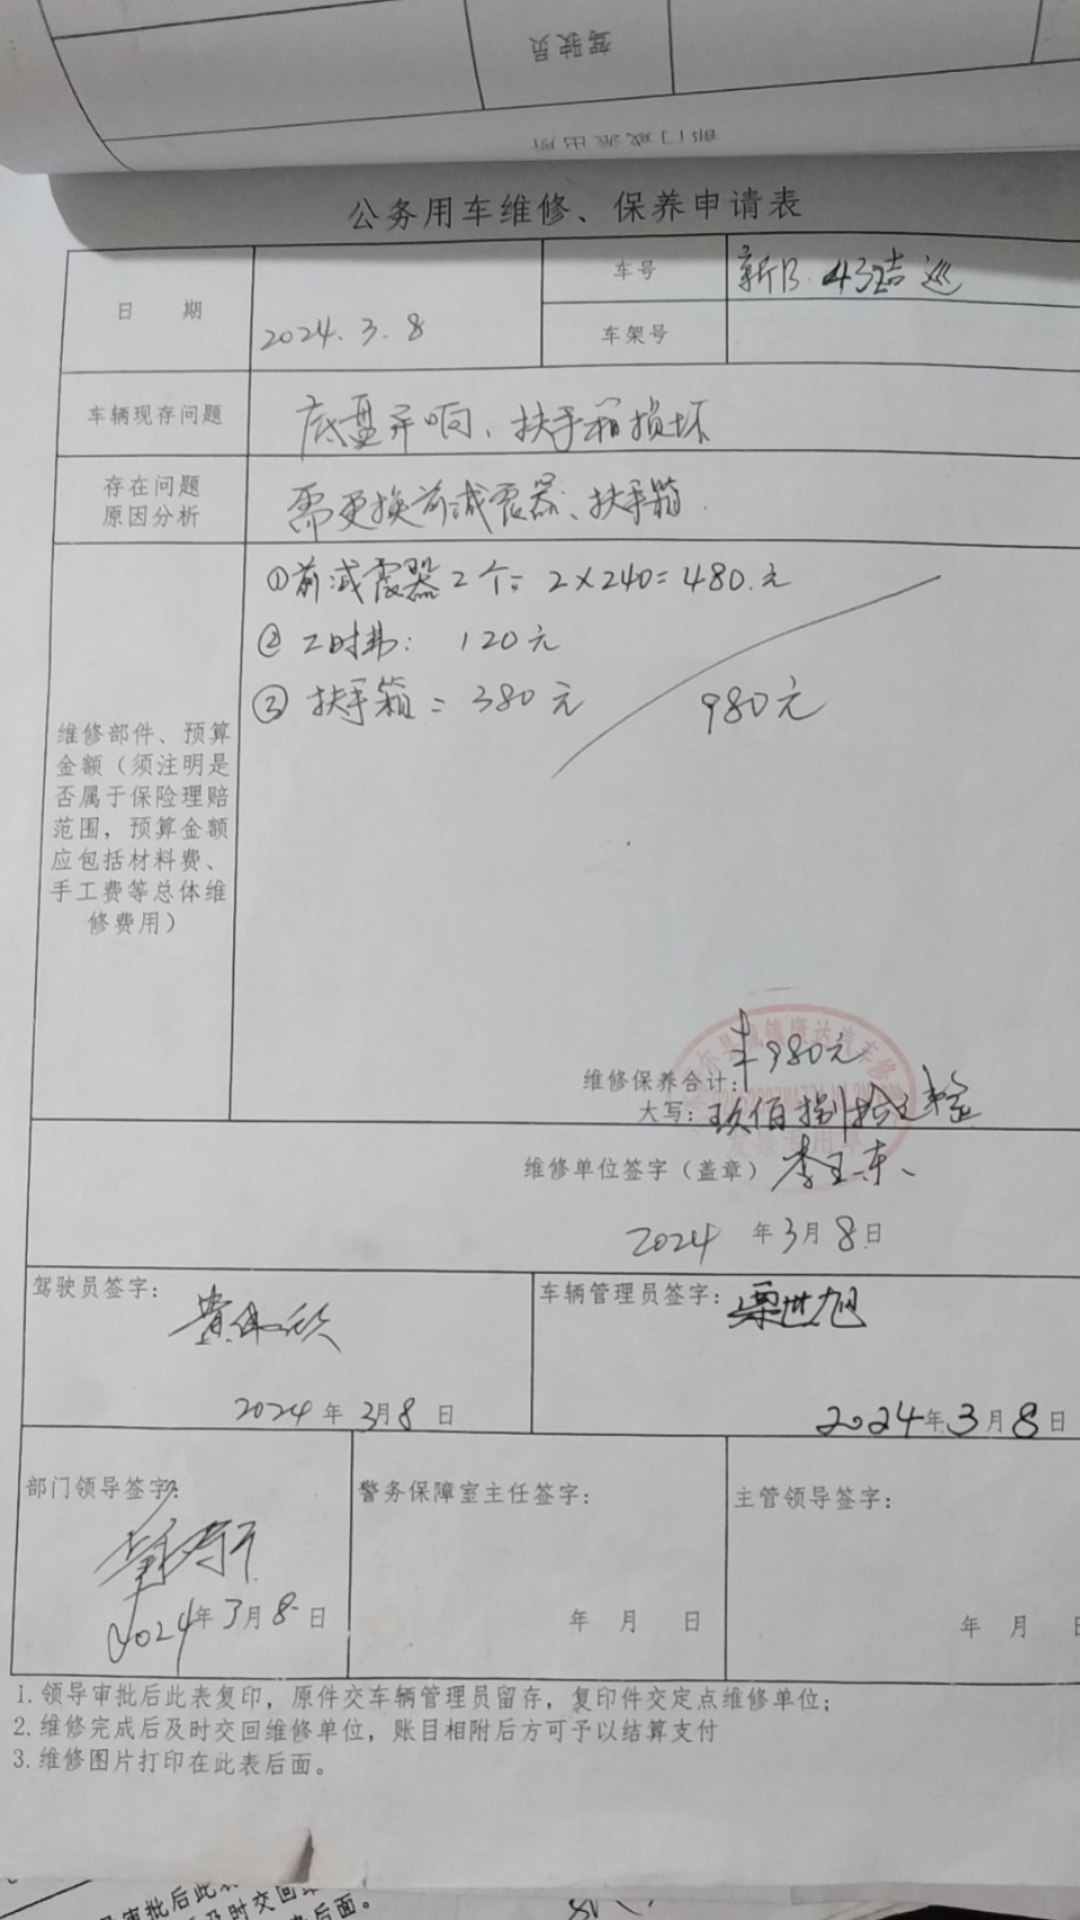 驾驶员
部门或派出所
公务用车维修、保养申请表
日 期
2024.3.8
车号
新B.
巡
车架号
车辆现存问题
底盘异响、扶手箱损坏
存在问题
原因分析
需更换前减震器、扶手箱.
维修部件、预算
金额（须注明是
否属于保险理赔
范围，预算金额
应包括材料费、
手工费等总体维
修费用）
①前减震器2个: 2×240=480.元
②工时费: 120元
③扶手箱= 380元
980元
维修保养合计: 980元
大写: 玖佰捌拾元整
发票专用章
维修单位签字（盖章）
2024 年3月8日
驾驶员签字:
2024年3月8日
车辆管理员签字: 栗世旭
2024年3月8日
部门领导签字:
2024年3月8日
警务保障室主任签字:
年 月 日
主管领导签字:
年 月 日
1.领导审批后此表复印，原件交车辆管理员留存，复印件交定点维修单位;
2.维修完成后及时交回维修单位，账目相附后方可予以结算支付
3.维修图片打印在此表后面。
审批后此
时交回
后面。